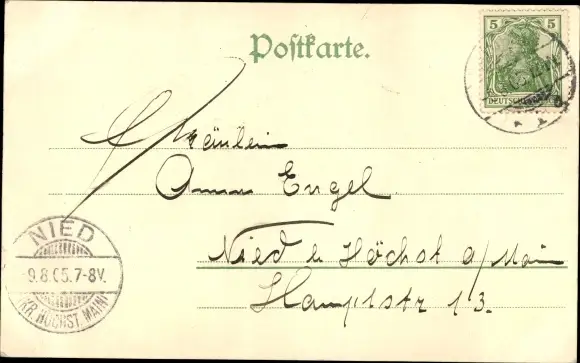 Postkarte.
5 5
DEUTSCHES
Fräulein
Anna Engel
Nied b Höchst a/Main
Hauptstr 13.
NIED
9.8.05.7-8V.
(KR. HÖCHST, MAIN)